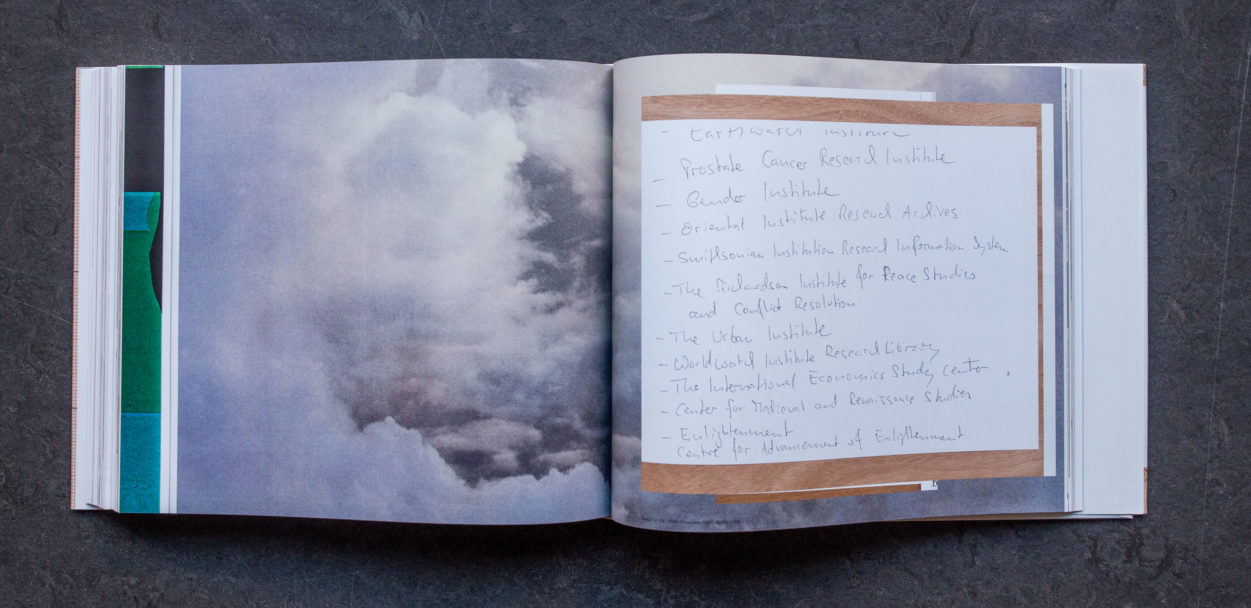 - Earthwatch Institute
- Prostate Cancer Research Institute
- Gender Institute
- Oriental Institute Research Archives
- Smithsonian Institution Research Information System
- The Richardson Institute for Peace Studies
and Conflict Resolution
- The Urban Institute
- Worldwatch Institute Research Library
- The International Economics Study Center
- Center for Medieval and Renaissance Studies
- Enlightenment
Centre for Advancement of Enlightenment